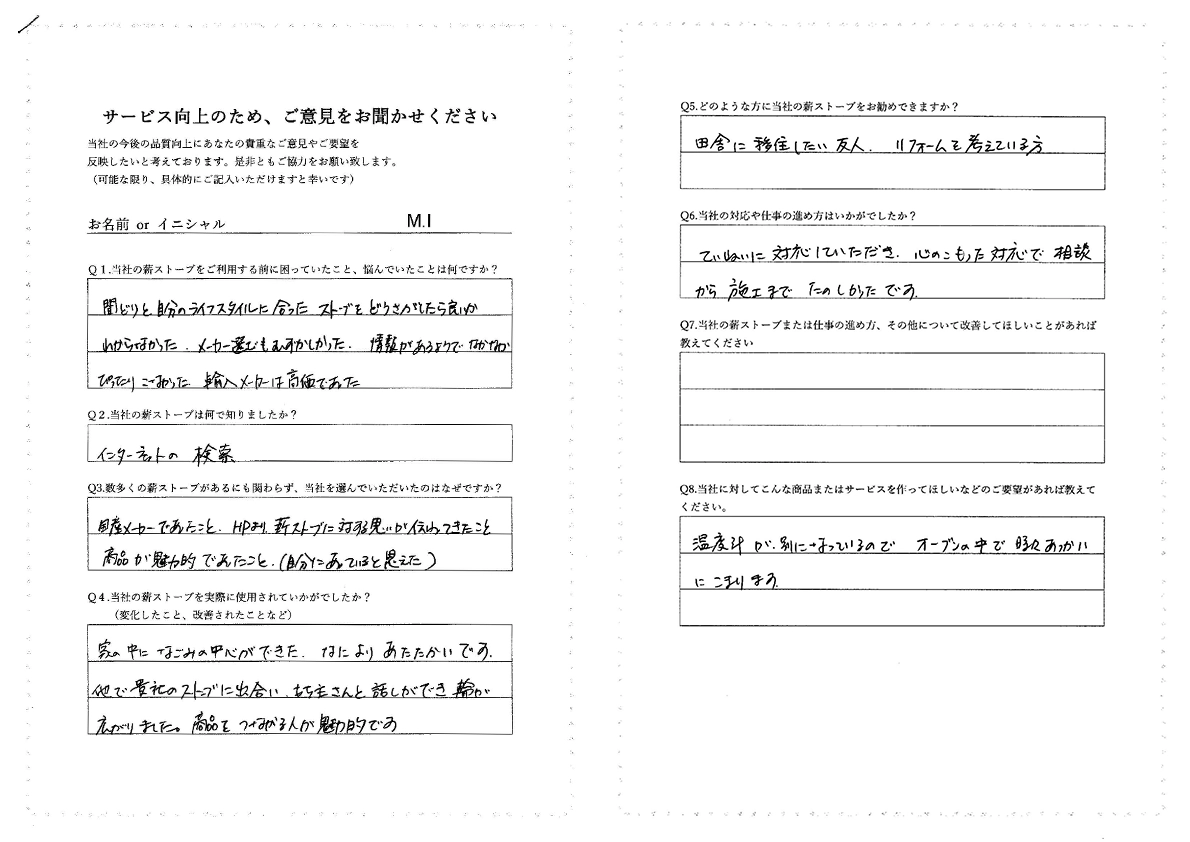 サービス向上のため、ご意見をお聞かせください
当社の今後の品質向上にあなたの貴重なご意見やご要望を
反映したいと考えております。是非ともご協力をお願い致します。
（可能な限り、具体的にご記入いただけますと幸いです）
お名前 or イニシャル M.I
Q１.当社の薪ストーブをご利用する前に困っていたこと、悩んでいたことは何ですか？
間どりと自分のライフスタイルに合った ストーブを どうさがしたら良いか
わからなかった．メーカー選びもむずかしかった． 情報があるようで なかなか
ぴったりこなかった 輸入メーカーは高価であった
Q２.当社の薪ストーブは何で知りましたか？
インターネットの 検索
Q3.数多くの薪ストーブがあるにも関わらず、当社を選んでいただいたのはなぜですか？
国産メーカーであったこと． HPより．薪ストーブに対する思いが伝わってきたこと
商品が魅力的であったこと．（自分にあっていると思えた）
Q４.当社の薪ストーブを実際に使用されていかがでしたか？
（変化したこと、改善されたことなど）
家の中に なごみの中心ができた． なにより あたたかいです．
他で貴社のストーブに出合い．もち主さんと 話しができ 輪が
広がりました。商品を つなげる人が魅力的です
Q5.どのような方に当社の薪ストーブをお勧めできますか？
田舎に 移住したい 友人． リフォームを考えている方
Q6.当社の対応や仕事の進め方はいかがでしたか？
ていねいに 対応していただき．心のこもった対応で 相談
から 施工まで たのしかったです．
Q7.当社の薪ストーブまたは仕事の進め方、その他について改善してほしいことがあれば
教えてください
Q8.当社に対してこんな商品またはサービスを作ってほしいなどのご要望があれば教えて
ください。
温度計が．別になっているので オーブンの中で 時々あつかい
に こまります．